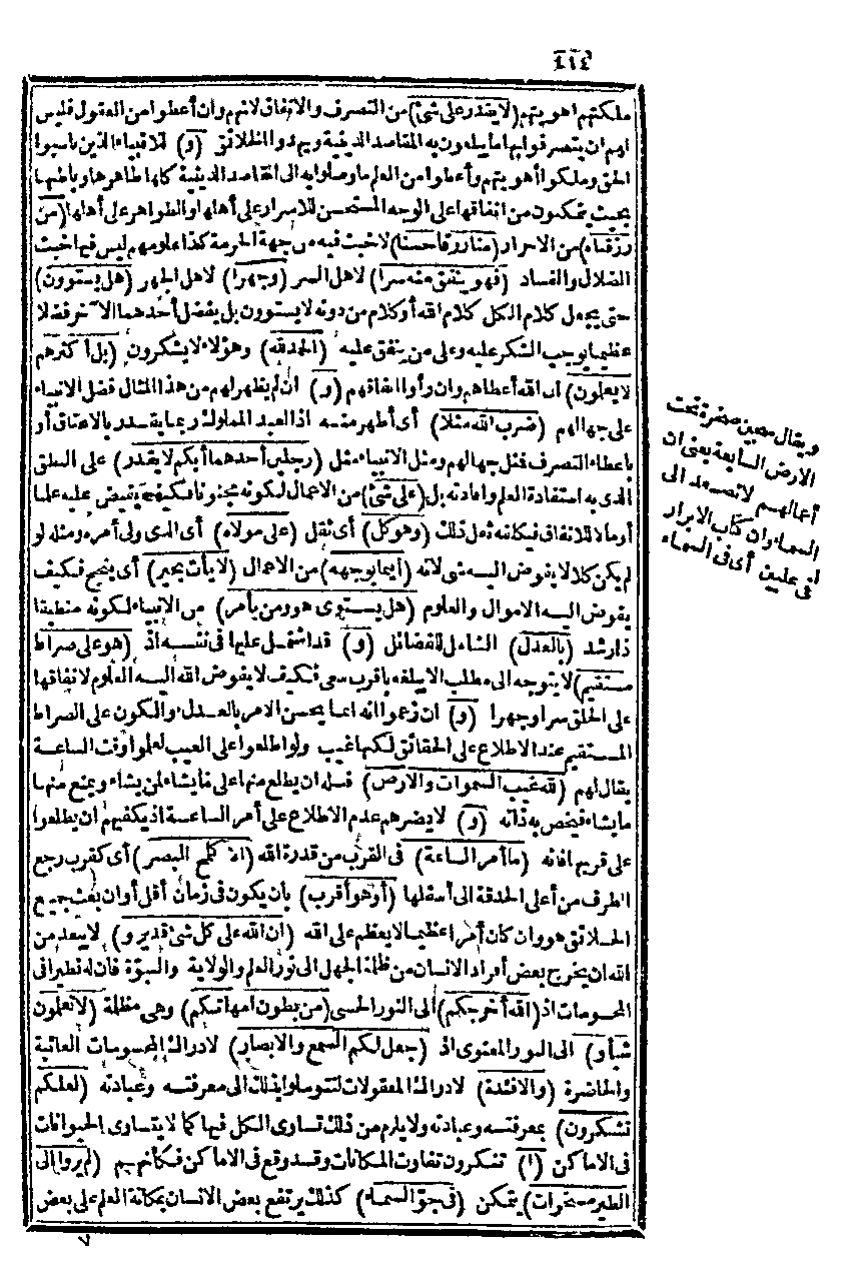 ٤١٤
ملكتهم اهويتهم (لا يقدر على شئ) من التصرف والانفاق لانهم وان أعطوا من العقول فليس
لهم ان يتصرفوا بها ما يطلعون به المقاصد الدينية ويهدوا الخلائق (و) للانبياء الذين ناسبوا
الحق وملكوا أهويتهم وأعطوا من العلم ما وصلوا به الى المقاصد الدينية كلها ظاهرها وباطنها
بحيث يتمكنون من انفاقها على الوجه المستحسن للاسرار على أهلها والظواهر على أهلها (من
رزقناه) من الاحرار (منا رزقا حسنا) لا خبث فيه من جهة الحرمة كذا علومهم ليس فيها خبث
الضلال والفساد (فهو ينفق منه سرا) لاهل السر (وجهرا) لاهل الجهر (هل يستوون)
حتى يجعل كلام الكل كلام الله أو كلام من دونه لا يستوون بل يفضل أحدهما الآخر فضلا
عظيما يوجب الشكر عليه وعلى من ينفق عليه (الحمد لله) وهؤلاء لا يشكرون (بل أكثرهم
لا يعلون) ان الله أعطاهم وان رأوا انفاقهم (و) ان لم يظهر لهم من هذا المثال فضل الانبياء
على جهالهم (ضرب الله مثلا) أى أظهر منه اذ العبد المملوك ربما يقدر بالاعتاق أو
باعطاء التصرف فمثل جهالهم ومثل الانبياء مثل (رجلين أحدهما أبكم لا يقدر) على النطق
الذى به استفادة العلم وافادته بل (على شئ) من الاعمال لكونه مجنونا فكيف يفيض عليه علما
أو مالا للانفاق فكانه فعل ذلك (وهو كل) أى ثقل (على مولاه) أى الذى ولى أمره ومثله لو
لم يكن كلا لا يفوض اليه شئ لانه (أينما يوجهه) من الاعمال (لا يأت بخير) أى ينجح فكيف
يفوض اليه الاموال والعلوم (هل يستوى هو ومن يأمر) من الانبياء لكونه منطيقا
ذا رشد (بالعدل) الشامل للفضائل (و) قد اشتمل عليها فى نفسه اذ (هو على صراط
مستقيم) لا يتوجه الى مطلب الا يبلغه باقرب سعى فكيف لا يفوض الله اليه العلوم لانفاقها
على الخلق سرا وجهرا (و) ان زعموا انه انما يحسن الامر بالعدل والكون على الصراط
المستقيم عند الاطلاع على الحقائق لكنها غيب ولو اطلعوا على الغيب لعلوا وقت الساعة
يقال لهم (لله غيب السموات والارض) فله ان يطلع منها على ما يشاء لمن يشاء ويمنع منها
ما يشاء فيخص به ذاته (و) لا يضرهم عدم الاطلاع على أمر الساعة اذ يكفيهم ان يطلعوا
على قربها فانه (ما أمر الساعة) فى القرب من قدرة الله (الا كلمح البصر) أى كقرب رجع
الطرف من أعلى الحدقة الى أسفلها (أو هو أقرب) بأن يكون فى زمان أقل أو ان بعث جميع
الخلائق هو وان كان أمرا عظيما لا يعظم على الله (ان الله على كل شئ قدير و) لا يبعد من
الله ان يخرج بعض أفراد الانسان من ظلمة الجهل الى نور العلم والولاية والنبوة فان له نظيرا فى
المحسومات اذ (الله أخرجكم) الى النور الحسى (من بطون امهاتكم) وهى مظلمة (لا تعلمون
شيأ و) الى النور المعنوى اذ (جعل لكم السمع والابصار) لادراك المحسوسات الغائبة
والحاضرة (والافئدة) لادراك المعقولات لتتوسلوا بذلك الى معرفته وعبادته (لعلكم
تشكرون) بمعرفته وعبادته ولا يلزم من ذلك تساوى الكل فيها كما لا يتساوى الحيوانات
فى الاماكن (ا) تنكرون تفاوت المكانات وقد وقع فى الاماكن فكأنهم (لم يروا الى
الطير مسخرات) يتمكن (فى جو السماء) كذلك يرتفع بعض الانسان بمكانة العلم على بعض
ويقال سجين صخرة تحت
الارض السابعة يعنى ان
أعمالهم لا تصعد الى
السماء وان كتاب الابرار
لفى عليين أى فى السماء